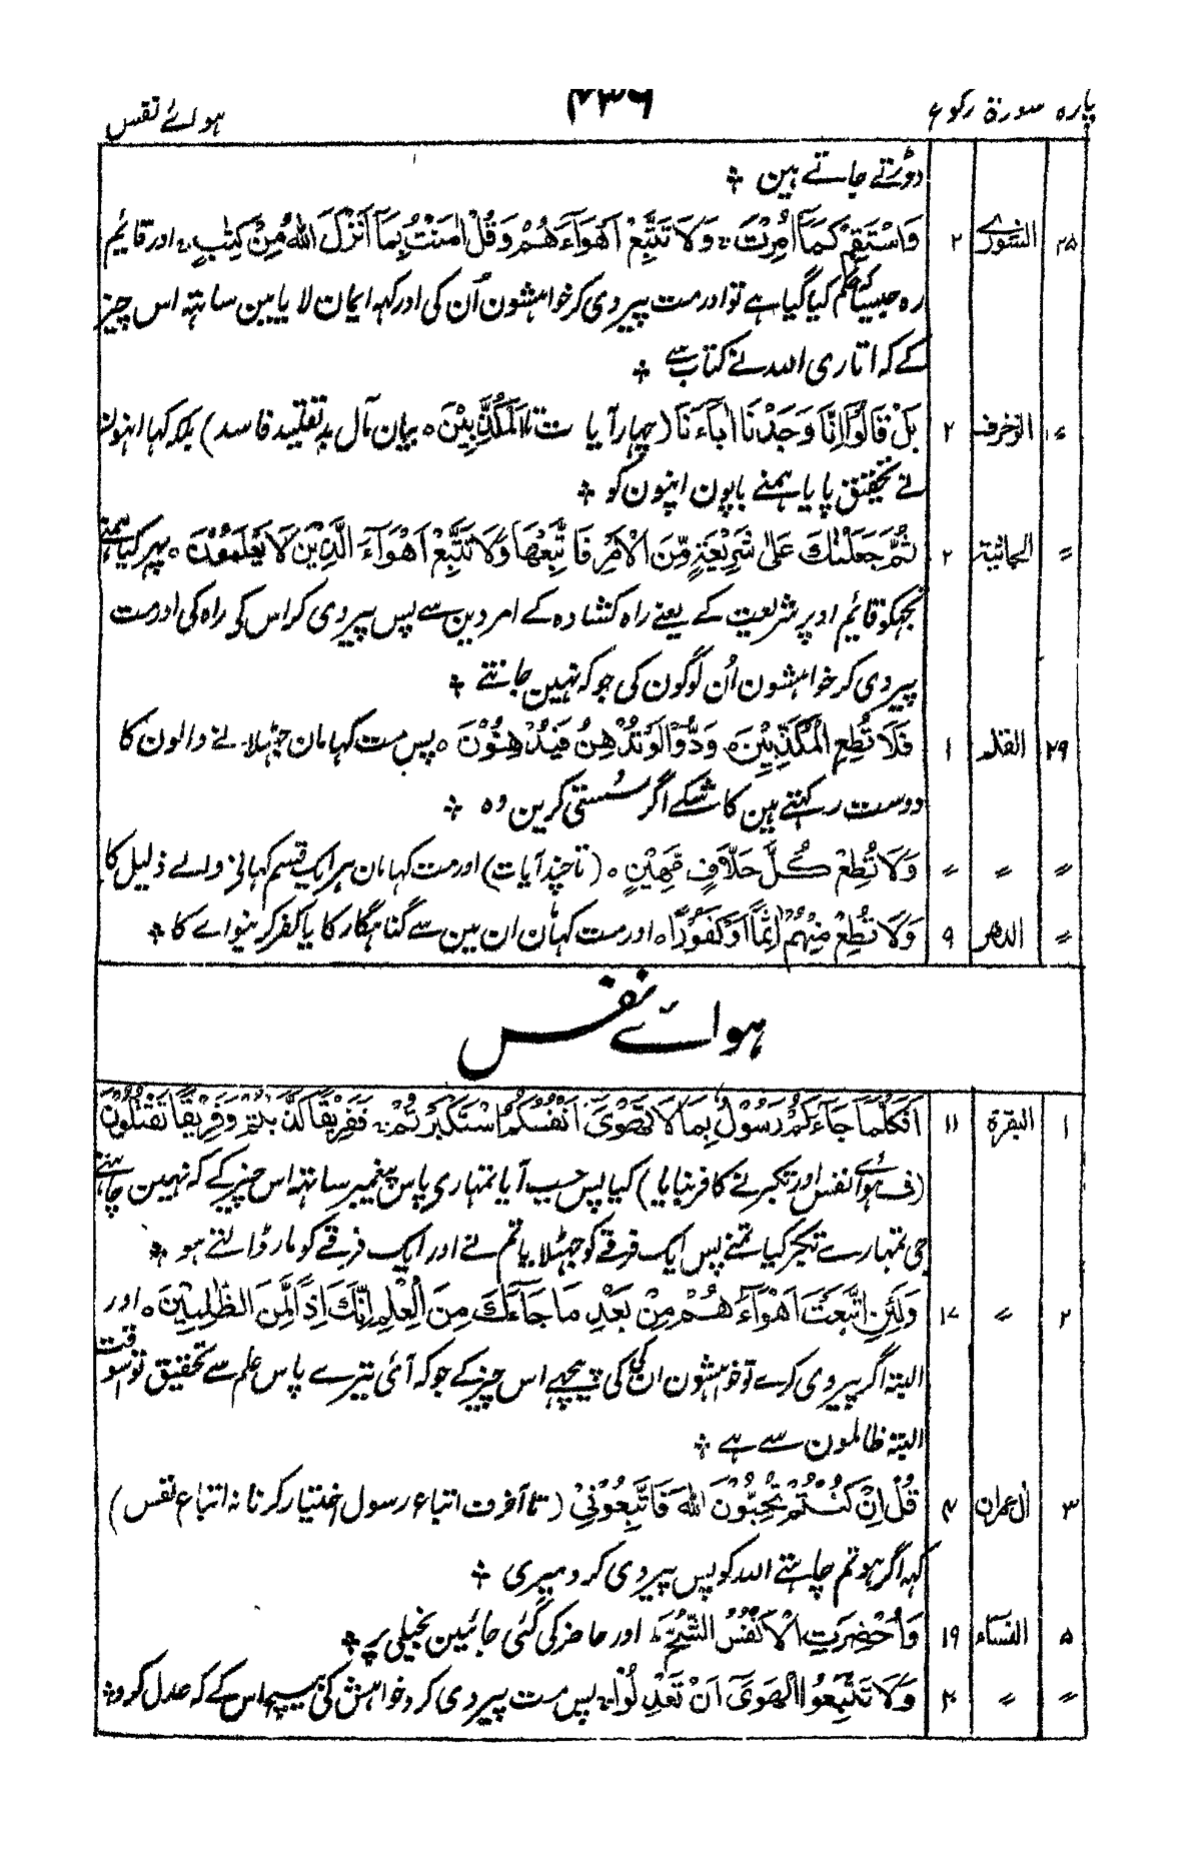 پارہ سورۃ رکوع ۴۳۶ ہوائے نفس
دوڑتے جاتے ہین ❖
۲۵ الشورے ۲ وَاسْتَقِمْ كَمَآ اُمِرْتَ، وَلَا تَتَّبِعْ اَهْوَآءَهُمْ وَقُلْ اٰمَنْتُ بِمَآ اَنْزَلَ اللّٰهُ مِنْ كِتٰبٍ، اور قایم
رہ جیسا کہ حکم کیا گیا ہے تو اور مت پیروی کر خواہشون اُن کی اور کہہ ایمان لایا مین ساتھ اس چیز
کے کہ اتاری اللہ نے کتاب سے ❖
〃 الزخرف ۲ بَلْ قَالُوْٓا اِنَّا وَجَدْنَآ اٰبَآءَنَا (چہار آیات تا الْمُكَذِّبِیْنَ ہ بیان مآل بد تقلید فاسد) بلکہ کہا انہون
نے تحقیق پایا ہمنے باپون اپنون کو ❖
〃 الجاثیۃ ۲ ثُمَّ جَعَلْنٰكَ عَلٰى شَرِیْعَةٍ مِّنَ الْاَمْرِ فَاتَّبِعْهَا وَلَا تَتَّبِعْ اَهْوَآءَ الَّذِیْنَ لَا یَعْلَمُوْنَ ہ پہر کیا ہمنے
تجہکو قایم اوپر شریعت کے یعنے راہ کشادہ کے امر دین سے پس پیروی کر اس کی راہ کی اور مت
پیروی کر خواہشون اُن لوگون کی جو کہ نہین جانتے ❖
۲۹ القلم ۱ فَلَا تُطِعِ الْمُكَذِّبِیْنَ ہ وَدُّوْا لَوْ تُدْهِنُ فَیُدْهِنُوْنَ ہ پس مت کہا مان جہٹلانے والون کا
دوست رکہتے ہین کاشکے اگر سُستی کرین وہ ❖
〃 〃 〃 وَلَا تُطِعْ كُلَّ حَلَّافٍ مَّهِیْنٍ ہ (تا چند آیات) اور مت کہا مان ہر ایک قسم کہانی والے ذلیل کا
〃 الدھر ۹ وَلَا تُطِعْ مِنْهُمْ اٰثِمًا اَوْ كَفُوْرًا ہ اور مت کہا مان ان مین سے گناہگار کا یا کفر کرنیوالے کا ❖
ہوائے نفس
۱ البقرۃ ۱۱ اَفَكُلَّمَا جَآءَكُمْ رَسُوْلٌۢ بِمَا لَا تَهْوٰٓى اَنْفُسُكُمُ اسْتَكْبَرْتُمْ، فَفَرِیْقًا كَذَّبْتُمْ وَفَرِیْقًا تَقْتُلُوْنَ
(ف ہوائے نفس اور تکبر نے کافر بنایا) کیا پس جب آیا تمہاری پاس پیغمبر ساتھ اس چیز کے کہ نہین چاہتے
جی تمہارے تکبر کیا تمنے پس ایک فرقے کو جہٹلایا تم نے اور ایک فرقے کو مار ڈالتے ہو ❖
۲ 〃 ۱۷ وَلَئِنِ اتَّبَعْتَ اَهْوَآءَهُمْ مِنْۢ بَعْدِ مَا جَآءَكَ مِنَ الْعِلْمِ اِنَّكَ اِذًا لَّمِنَ الظّٰلِمِیْنَ ہ اور
البتہ اگر پیروی کرے تو خواہشون ان کی پیچہے اس چیز کے جو کہ آئی تیرے پاس علم سے تحقیق تو اسوقت
البتہ ظالمون سے ہے ❖
۳ آل عمران ۴ قُلْ اِنْ كُنْتُمْ تُحِبُّوْنَ اللّٰهَ فَاتَّبِعُوْنِیْ (تا آخر ف اتباع رسول اختیار کرنا نہ اتباع نفس)
کہہ اگر ہو تم چاہتے اللہ کو پس پیروی کرو میری ❖
۵ النساء ۱۹ وَاُحْضِرَتِ الْاَنْفُسُ الشُّحَّ، اور حاضر کی گئی جائین بخیلی پر ❖
〃 〃 ۲۰ وَلَا تَتَّبِعُوا الْهَوٰٓى اَنْ تَعْدِلُوْا، پس مت پیروی کرو خواہش کی بیچ اس کے کہ عدل کرو ❖